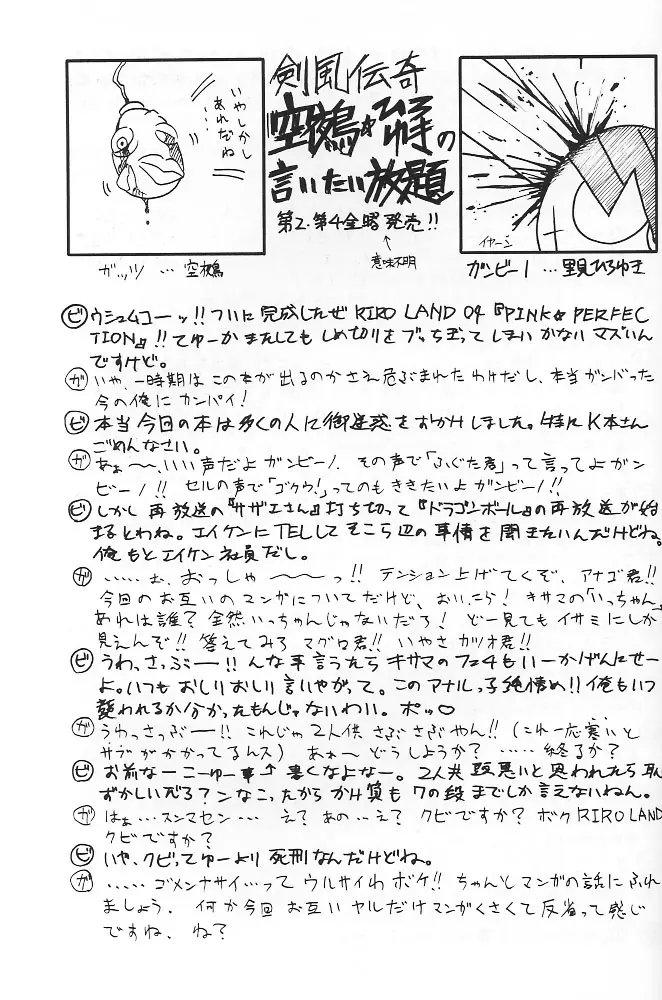 いやしかし
あれだね
剣風伝奇
空鵺☆ひろ雪の
言いたい放題
第2.第4金曜発売!!
↑
意味不明
イヤーン
ガッツ …空鵺
ガンビーノ…里見ひろゆき
ビ ウシュムコーッ!! ついに完成したぜ RIRO LAND 04『PINK☆PERFEC
TION』!! てゆーかまたしてもしめ切りをブッちぎってしまいかなりマズいん
ですけど。
ガ いや、一時期はこの本が出るのかさえ危ぶまれたわけだし、本当ガンバった
今の俺にカンパイ!
ビ 本当今回の本は多くの人に御迷惑をおかけしました。特にK本さん
ごめんなさい。
ガ あぁ〜〜、いい声だよガンビーノ. その声で「ふぐた君」って言ってよガン
ビーノ!! セルの声で「ゴクウ!」ってのもききたいよガンビーノ!!
ビ しかし再放送の『サザエさん』打ち切って『ドラゴンボール』の再放送が始
まるとわね。エイケンにTELしてそこら辺の事情を聞きたいんだけどね。
俺もとエイケン社員だし。
ガ ‥‥‥ぉ、おっしゃ〜〜〜っ!! テンション上げてくぞ、アナゴ君!!
今回のお互いのマンガについてだけど、おいこら! キサマの「いっちゃん」
あれは誰? 全然いっちゃんじゃないだろ! どー見てもイサミにしか
見えんぞ!! 答えてみろマグロ君!! いやさカツオ君!!
ビ うわっ、さっぶーー!! んな事言うたらキサマのフェ4もいーかげんにせー
よ。いつもおしりおしり言いやがって。このアナルっ子純情め!! 俺もいつ
襲われるか分かったもんじゃないわい。ポッ
ガ うわっさっぶー!! これじゃ2人供さぶさぶやん!! (これ一応寒いと
サブがかかってるんス) あぁ〜どうしようか? ‥‥‥終るか?
ビ お前なーこーゆー事↑書くなよなー。2人共頭悪いと思われたら恥
ずかしいだろ? ンなこったからかけ算も7の段までしか言えないねん。
ガ はぁ…スンマセン… え? あの…え? クビですか? ボクRIRO LAND
クビですか?
ビ いや、クビってゆーより死刑なんだけどね。
ガ ‥‥‥ゴメンナサイ…ってウルサイわボケ!! ちゃんとマンガの話にふれ
ましょう. 何か今回お互いヤルだけマンガくさくて反省って感じ
ですね、ね?